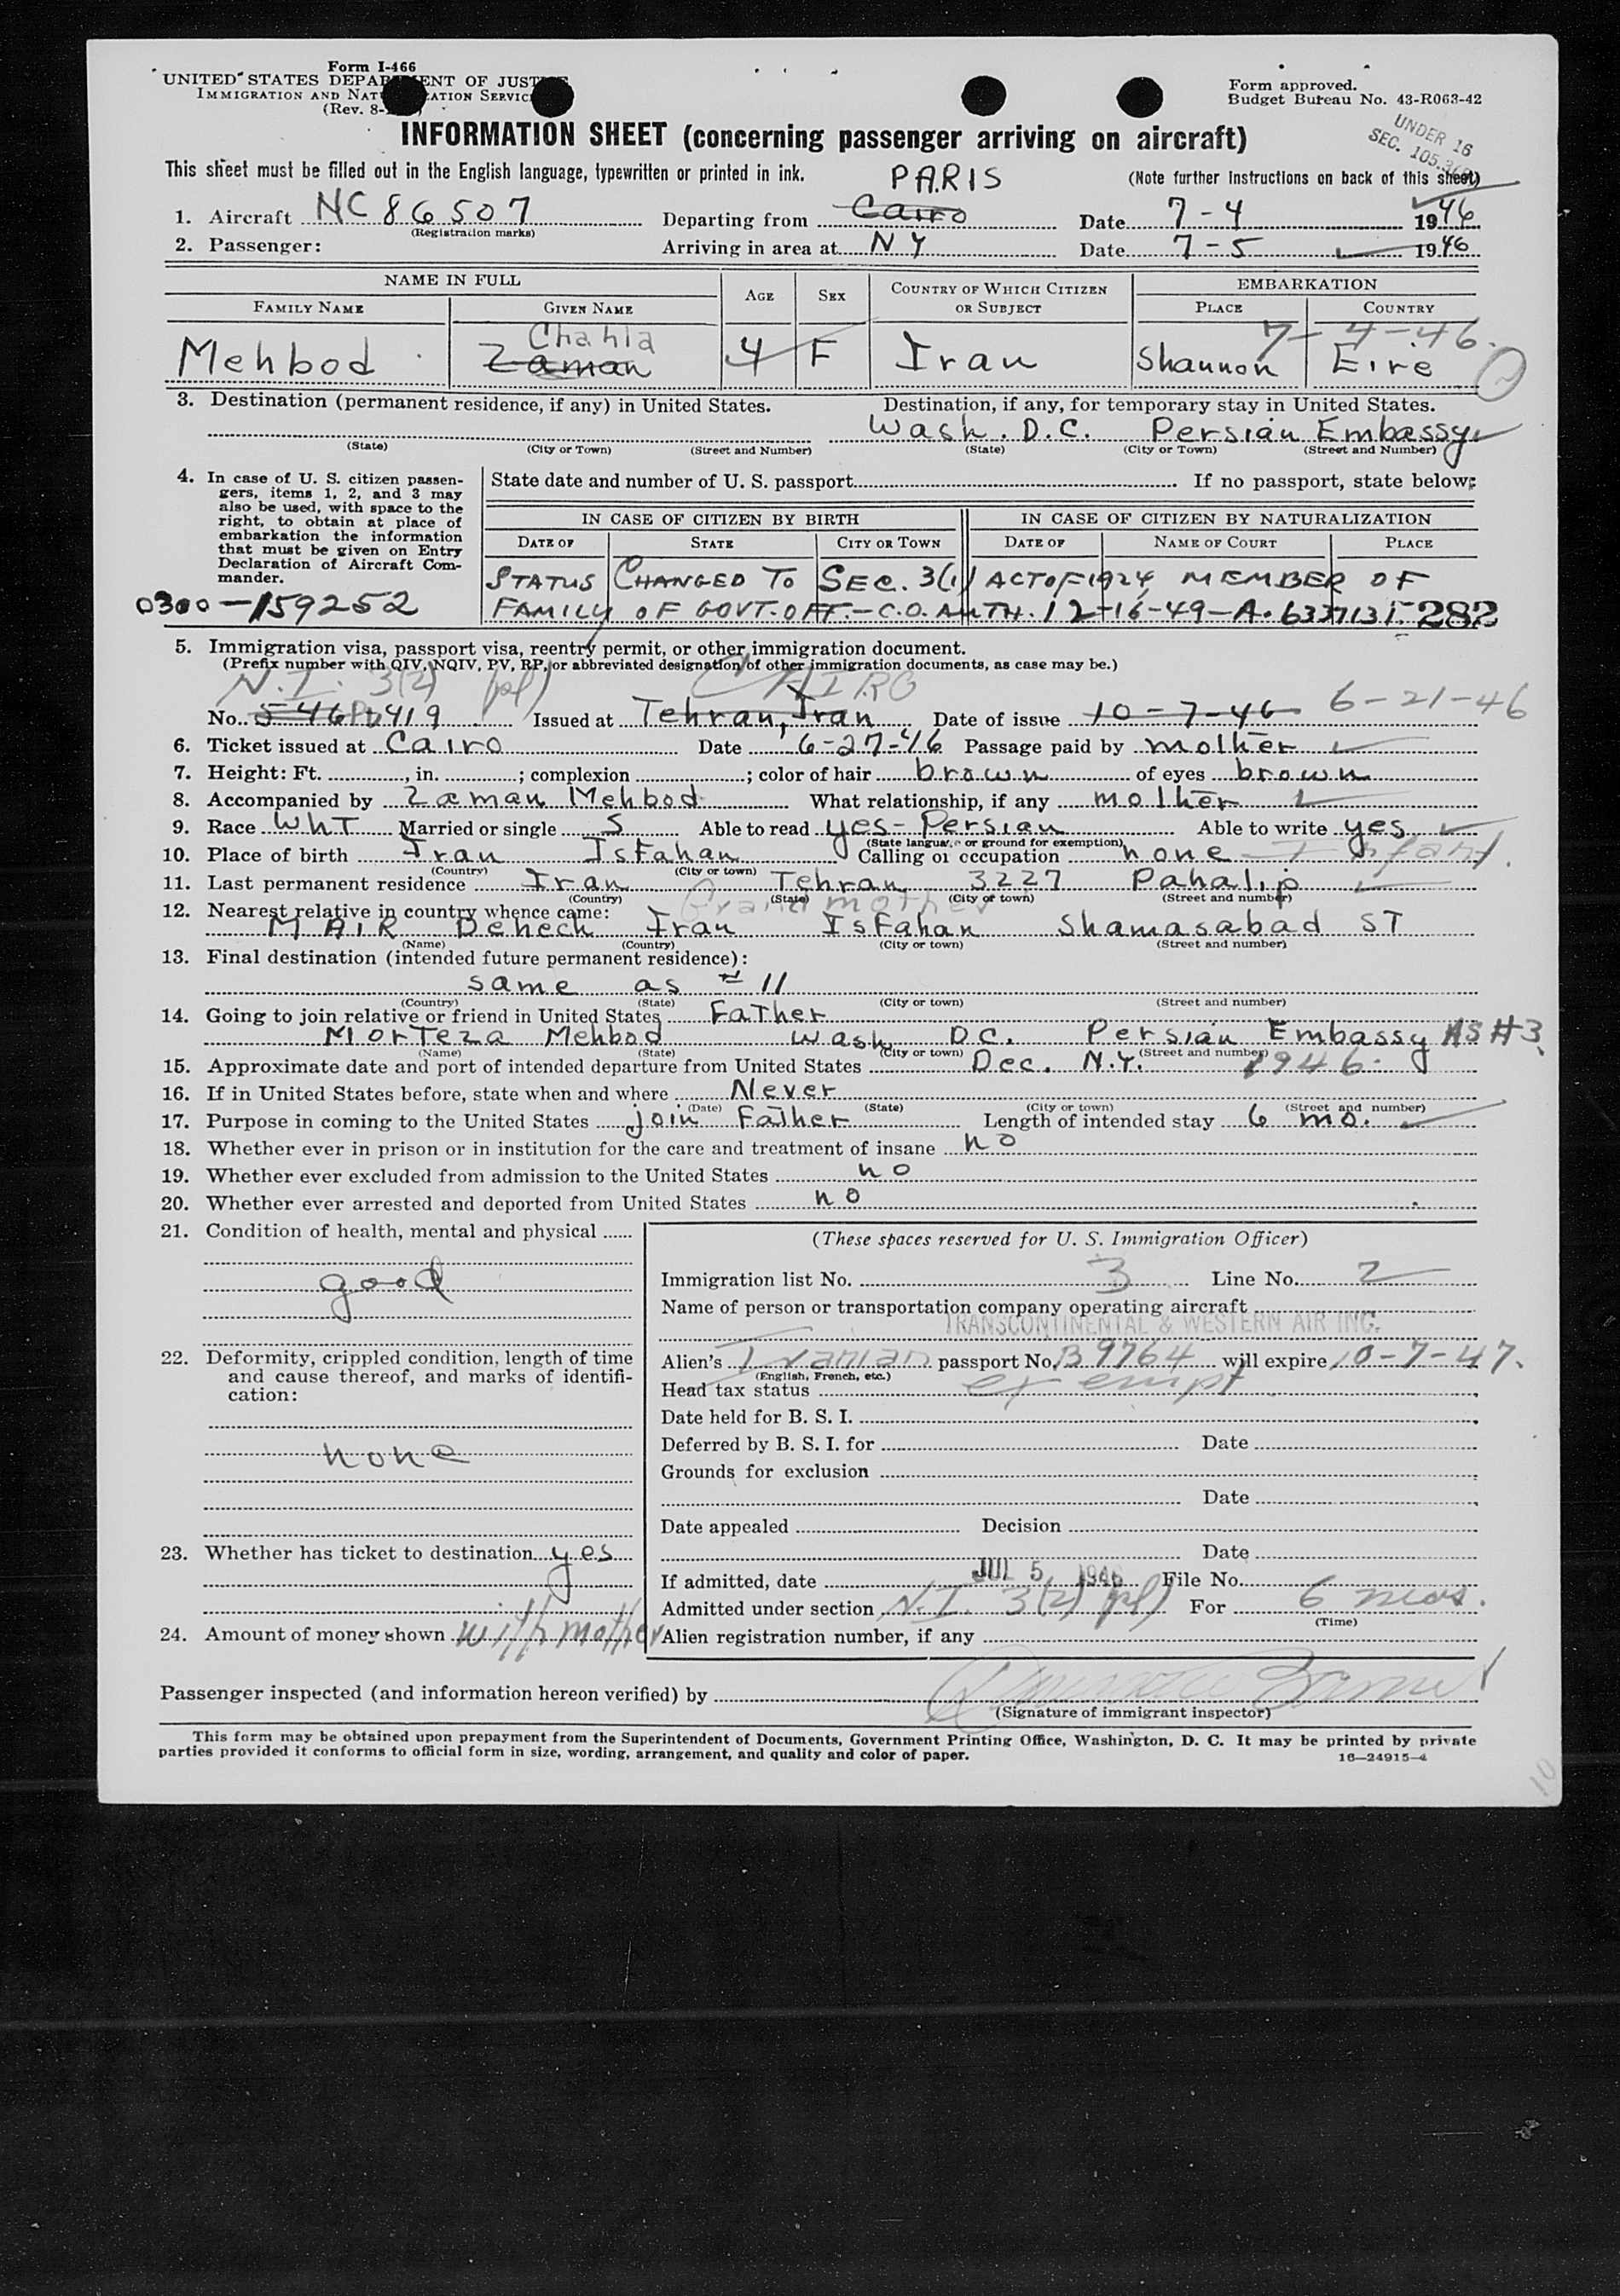 Form I-466
UNITED STATES DEPARTMENT OF JUSTICE
IMMIGRATION AND NATURALIZATION SERVICE
(Rev. 8-
Form approved.
Budget Bureau No. 43-R063-42
UNDER 16
SEC. 105.
INFORMATION SHEET (concerning passenger arriving on aircraft)
This sheet must be filled out in the English language, typewritten or printed in ink.
(Note further instructions on back of this sheet)
PARIS
1. Aircraft NC 86507 Departing from Cairo Date 7-4 1946
(Registration marks)
2. Passenger: Arriving in area at NY Date 7-5 1946
NAME IN FULL AGE SEX COUNTRY OF WHICH CITIZEN OR SUBJECT EMBARKATION
FAMILY NAME GIVEN NAME PLACE COUNTRY
Chahla 7-4-46.
Mehbod Zaman 4 F Iran Shannon Eire
3. Destination (permanent residence, if any) in United States. Destination, if any, for temporary stay in United States.
Wash. D.C. Persian Embassy
(State) (City or Town) (Street and Number) (State) (City or Town) (Street and Number)
4. In case of U. S. citizen passengers, items 1, 2, and 3 may also be used, with space to the right, to obtain at place of embarkation the information that must be given on Entry Declaration of Aircraft Commander.
State date and number of U. S. passport If no passport, state below:
IN CASE OF CITIZEN BY BIRTH IN CASE OF CITIZEN BY NATURALIZATION
DATE OF STATE CITY OR TOWN DATE OF NAME OF COURT PLACE
STATUS CHANGED TO SEC. 3(1) ACT OF 1924, MEMBER OF
0300-159252 FAMILY OF GOVT. OFF.-C.O. AUTH. 12-16-49-A-6337131-282
5. Immigration visa, passport visa, reentry permit, or other immigration document.
(Prefix number with QIV, NQIV, PV, RP, or abbreviated designation of other immigration documents, as case may be.)
N.I. 3(2) CAIRO 6-21-46
No. 546 PV 419 Issued at Tehran, Iran Date of issue 10-7-46
6. Ticket issued at Cairo Date 6-27-46 Passage paid by mother
7. Height: Ft. , in. ; complexion ; color of hair brown of eyes brown
8. Accompanied by Zaman Mehbod What relationship, if any mother
9. Race WhT Married or single S Able to read yes-Persian Able to write yes
(State language or ground for exemption)
10. Place of birth Iran Isfahan Calling or occupation none - Infant.
(Country) (City or town)
11. Last permanent residence Iran Tehran 3227 Pahalip
(Country) (State) (City or town) (Street and number)
12. Nearest relative in country whence came: Grandmother
MAIR Deheck Iran Isfahan Shamasabad ST
(Name) (Country) (City or town) (Street and number)
13. Final destination (intended future permanent residence):
same as # 11
(Country) (State) (City or town) (Street and number)
14. Going to join relative or friend in United States Father
Morteza Mehbod Wash. DC. Persian Embassy AS #3
(Name) (State) (City or town) (Street and number)
15. Approximate date and port of intended departure from United States Dec. N.Y. 1946.
16. If in United States before, state when and where Never
(Date) (State) (City or town) (Street and number)
17. Purpose in coming to the United States join Father Length of intended stay 6 mo.
18. Whether ever in prison or in institution for the care and treatment of insane no
19. Whether ever excluded from admission to the United States no
20. Whether ever arrested and deported from United States no
21. Condition of health, mental and physical
good
22. Deformity, crippled condition, length of time and cause thereof, and marks of identification:
none
23. Whether has ticket to destination yes
24. Amount of money shown with mother
(These spaces reserved for U. S. Immigration Officer)
Immigration list No. 3 Line No. 2
Name of person or transportation company operating aircraft
TRANSCONTINENTAL & WESTERN AIR INC.
Alien's Iranian passport No. B 9764 will expire 10-7-47.
(English, French, etc.)
Head tax status exempt
Date held for B. S. I.
Deferred by B. S. I. for Date
Grounds for exclusion
Date
Date appealed Decision
Date
If admitted, date JUL 5 1946 File No.
Admitted under section N.I. 3(2) For 6 mos.
(Time)
Alien registration number, if any
Passenger inspected (and information hereon verified) by
(Signature of immigrant inspector)
This form may be obtained upon prepayment from the Superintendent of Documents, Government Printing Office, Washington, D. C. It may be printed by private
parties provided it conforms to official form in size, wording, arrangement, and quality and color of paper.
16—24915-4
10